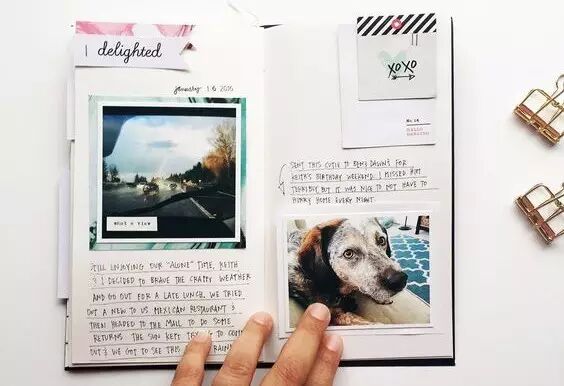 delighted
january 16 2016
What a view
STILL ENJOYING OUR "ALONE" TIME, KEITH
& I DECIDED TO BRAVE THE CRAPPY WEATHER
AND GO OUT FOR A LATE LUNCH. WE TRIED
OUT A NEW TO US MEXICAN RESTAURANT &
THEN HEADED TO THE MALL TO DO SOME
RETURNS. THE SUN KEPT TRYING TO COME
OUT & WE GOT TO SEE THIS RAIN
XOXO
No.
hello
SENT THIS CUTIE TO DAWN'S FOR
KEITH'S BIRTHDAY WEEKEND. I MISSED HIM
TERRIBLY BUT IT WAS NICE TO NOT HAVE TO
HURRY HOME EVERY NIGHT.